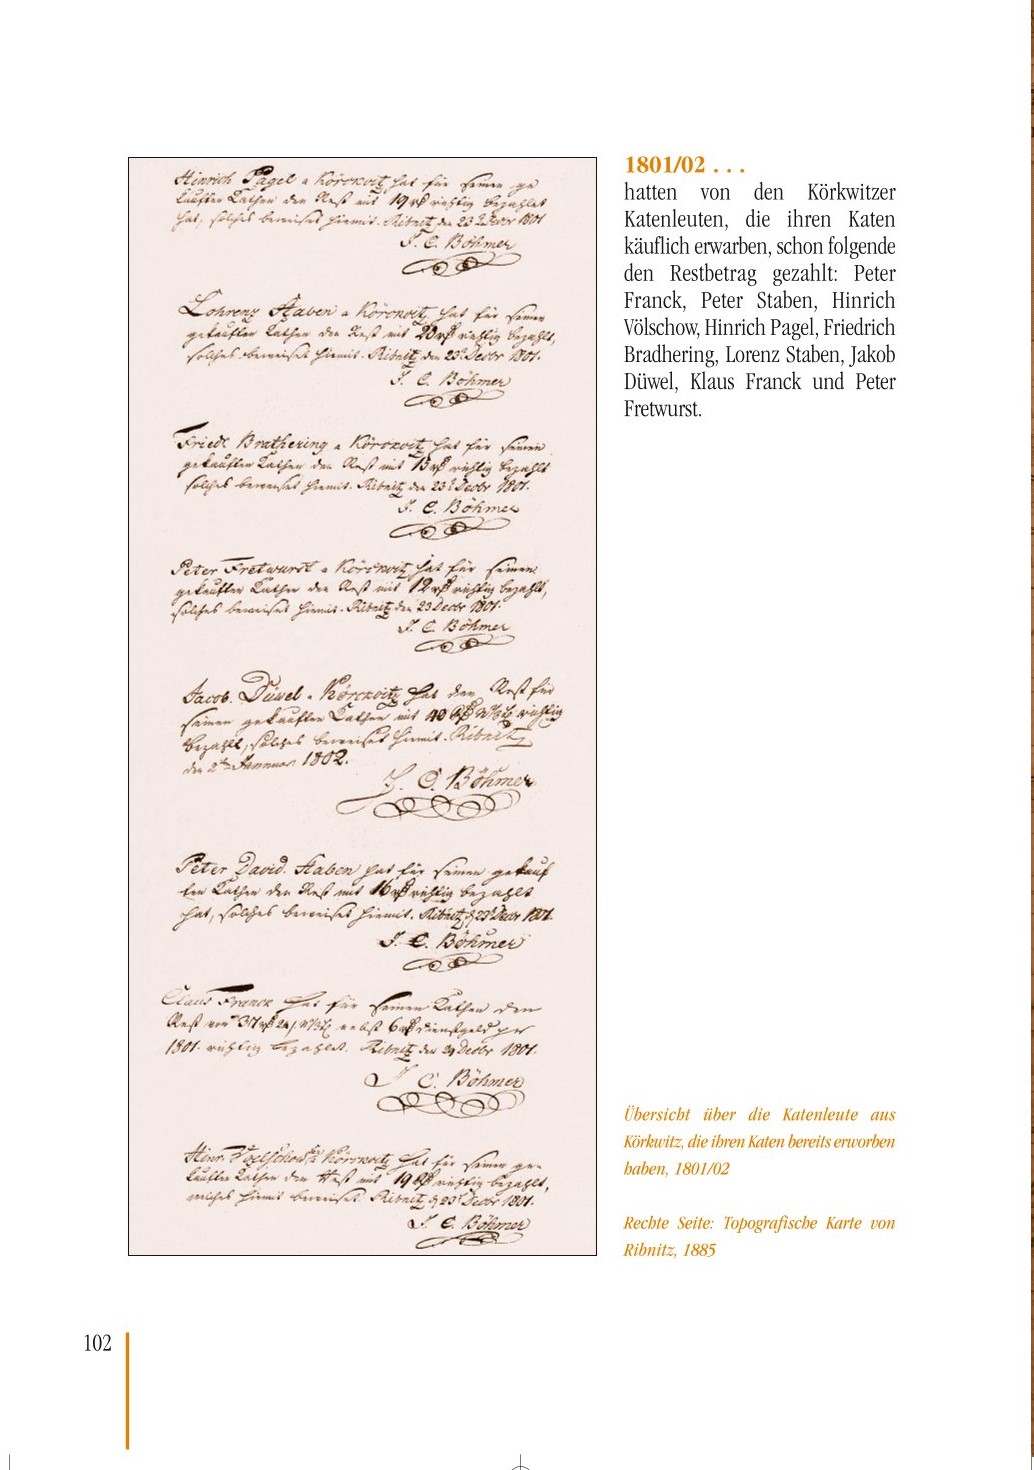 Hinrich Pagel a Körckwitz hat für seinen ge
kauften Kathen den Rest mit 19 rß richtig bezahlet
hat, solches beweiset hiemit. Ribnitz den 23 Decbr 1801
J. C. Böhmer
Lohrenz Staben a Körckvitz hat für seinen
gekauften Kathen den Rest mit 20 rß richtig bezahlt,
solches beweiset hiemit. Ribnitz den 23 Decbr 1801.
J. C. Böhmer
Friedr Brathering a Körckvitz hat für seinen
gekauften Kathen den Rest mit richtig bezahlt
solches beweiset hiemit. Ribnitz den 23 Decbr 1801.
J. C. Böhmer
Peter Fretwurst a Körckvitz hat für seinen
gekauften Kathen den Rest mit 12 rß richtig bezahlt,
solches beweiset hiemit. Ribnitz den 23 Decbr 1801.
J. C. Böhmer
Jacob Düwel a Körckvitz hat den Rest für
seinen gekauften Kathen mit 40 richtig
bezahlt, solches beweiset hiemit. Ribnitz
den 2 Januar 1802.
J. C. Böhmer
Peter David Staben hat für seinen gekauf
ten Kathen den Rest mit 16 rß richtig bezahlt
hat, solches beweiset hiemit. Ribnitz 23 Decbr 1801.
J. C. Böhmer
Claus Franck hat für seinen Kathen den
Rest von nebst 6 rß dienstgeld per
1801 richtig bezahlet. Ribnitz den Decbr 1801.
J C. Böhmer
Hinr. Körckvitz hat für seinen ge-
kauften Kathen den Rest mit 19 rß richtig bezahlt,
hiemit beweiset. Ribnitz 23 Decbr 1801.
J. C. Böhmer
1801/02 . . .
hatten von den Körkwitzer
Katenleuten, die ihren Katen
käuflich erwarben, schon folgende
den Restbetrag gezahlt: Peter
Franck, Peter Staben, Hinrich
Völschow, Hinrich Pagel, Friedrich
Bradhering, Lorenz Staben, Jakob
Düwel, Klaus Franck und Peter
Fretwurst.
Übersicht über die Katenleute aus
Körkwitz, die ihren Katen bereits erworben
haben, 1801/02
Rechte Seite: Topografische Karte von
Ribnitz, 1885
102